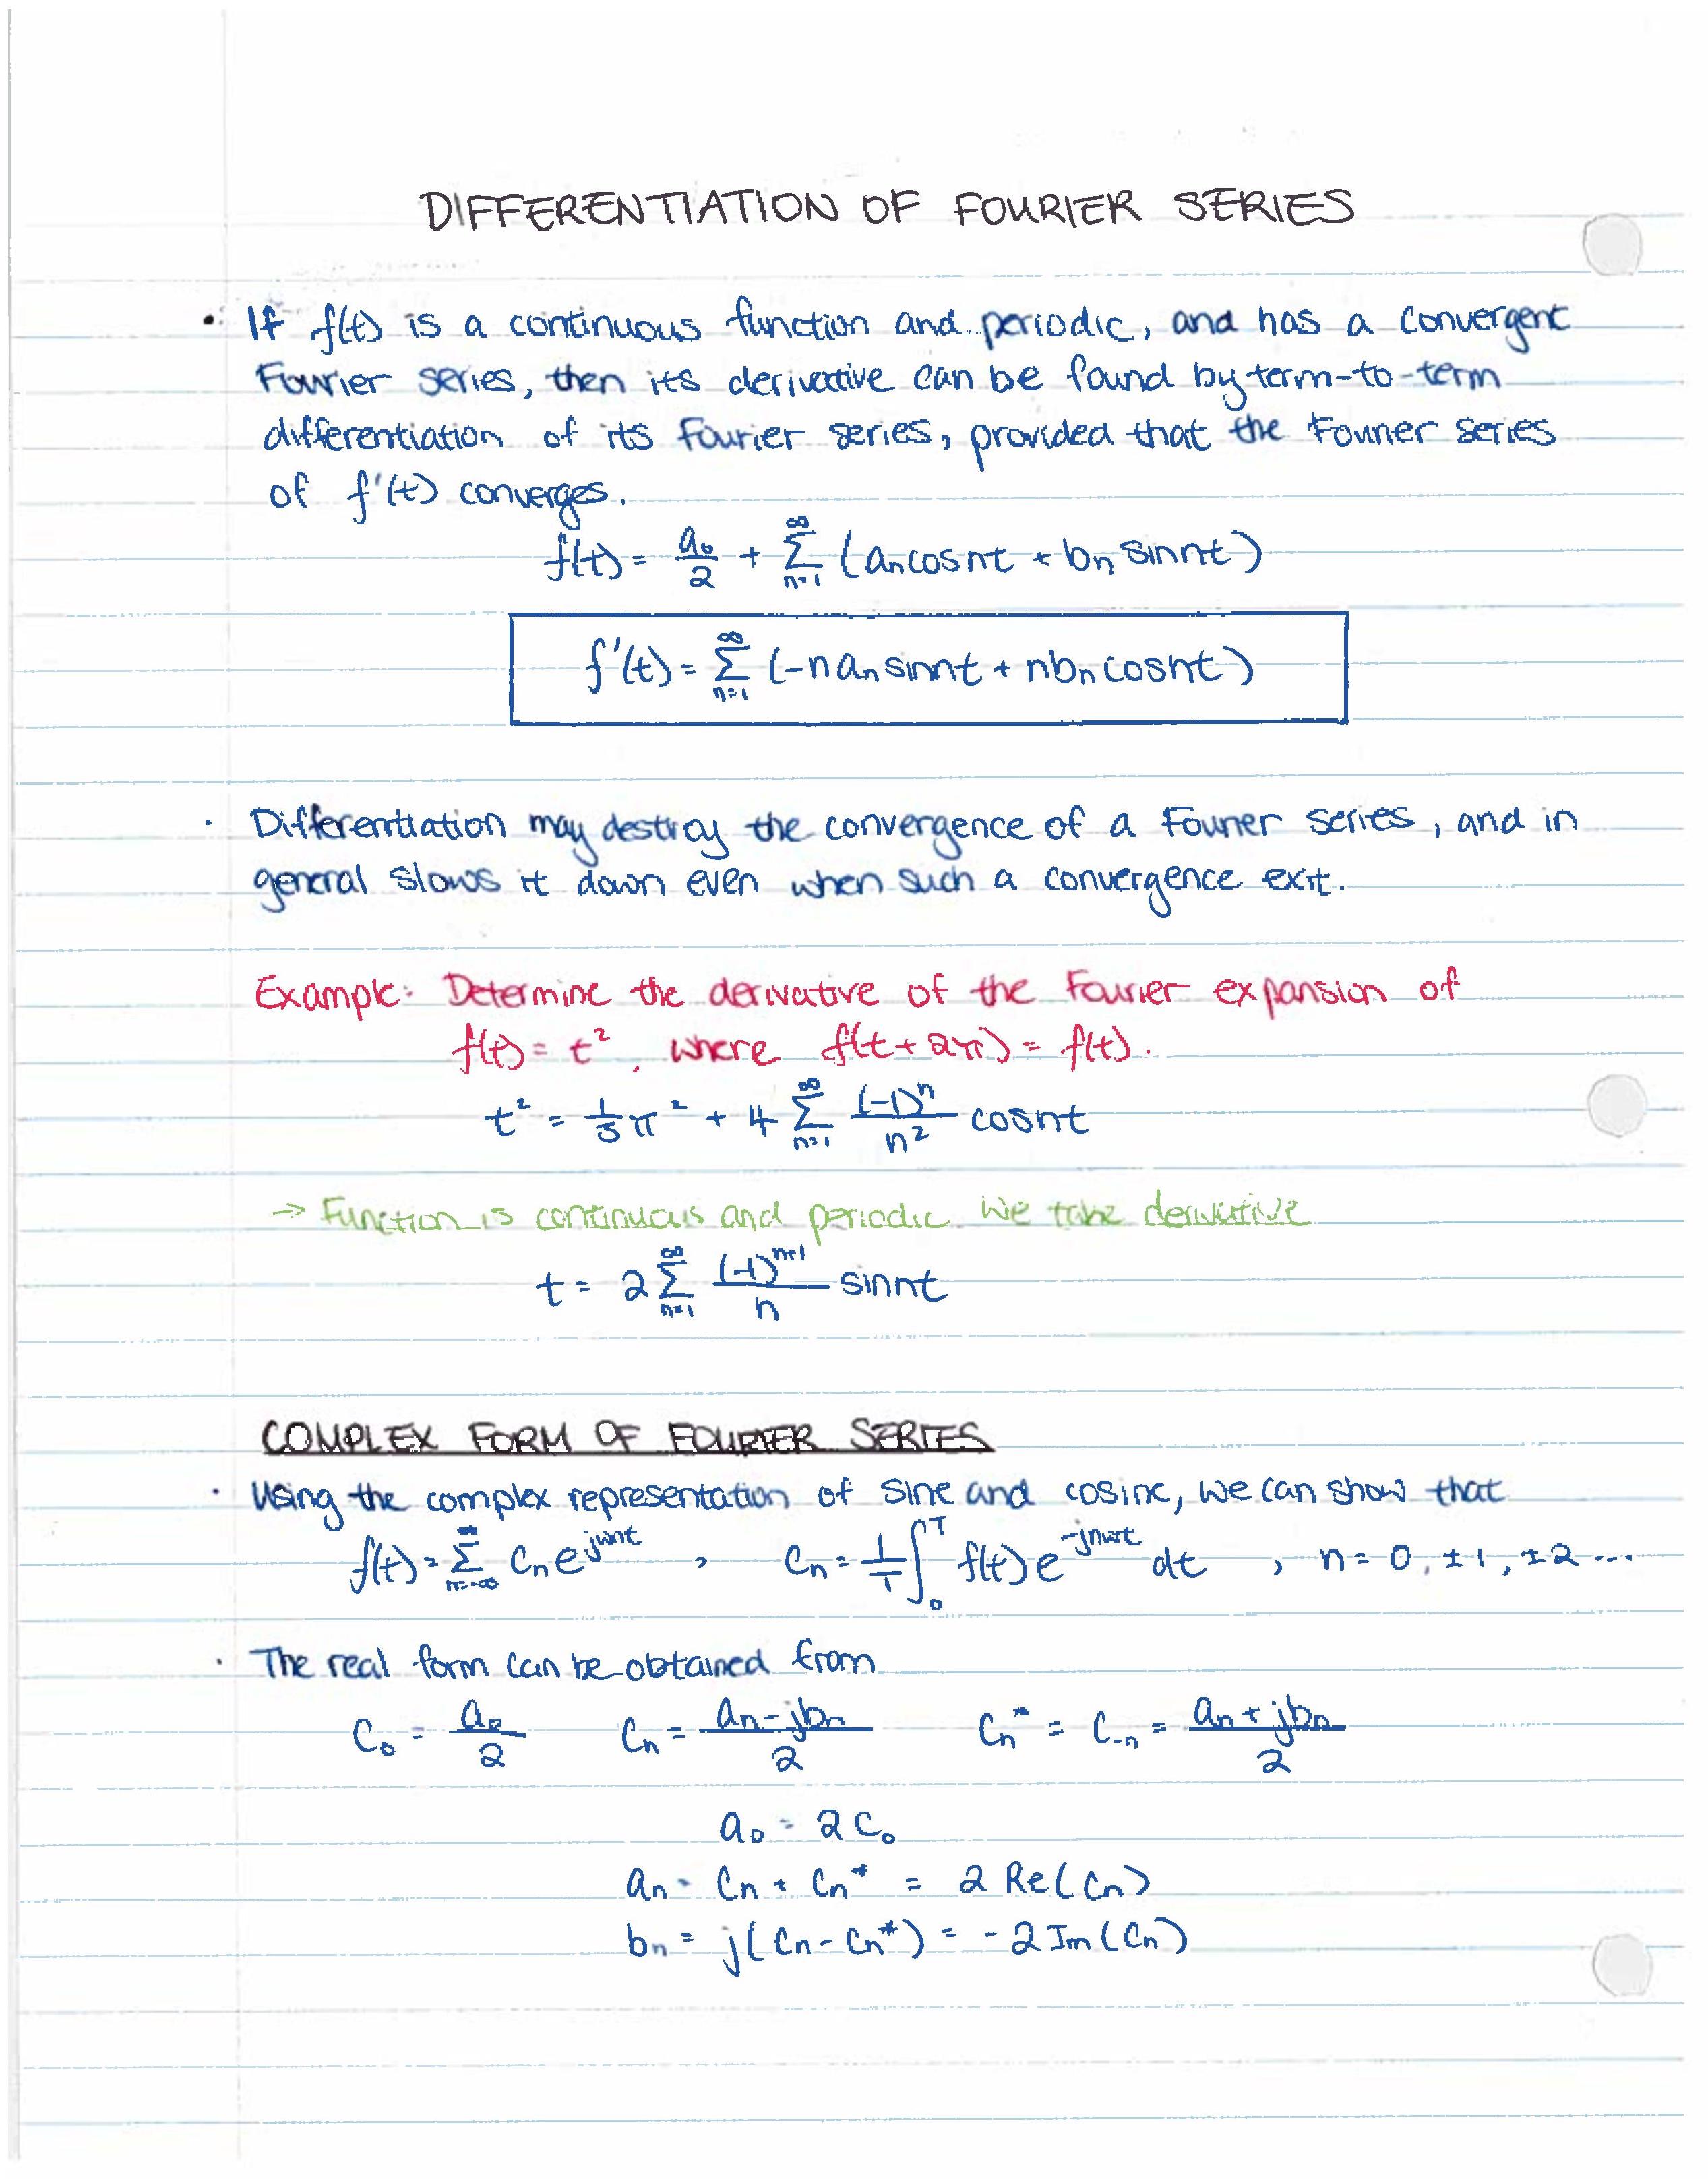 DIFFERENTIATION OF FOURIER SERIES
· If f(t) is a continuous function and periodic, and has a convergent
Fourier series, then its derivative can be found by term-to-term
differentiation of its Fourier series, provided that the Fourier series
of f'(t) converges.
f(t) = a₀/2 + Σ_{n=1}^{∞} (aₙ cosnt + bₙ sinnt)
f'(t) = Σ_{n=1}^{∞} (-naₙ sinnt + nbₙ cosnt)
· Differentiation may destroy the convergence of a Fourier series, and in
general slows it down even when such a convergence exit.
Example: Determine the derivative of the Fourier expansion of
f(t) = t², where f(t+2π) = f(t).
t² = 1/3 π² + 4 Σ_{n=1}^{∞} (-1)ⁿ/n² cosnt
→ Function is continuous and periodic. We take derivative
t = 2 Σ_{n=1}^{∞} (-1)ⁿ⁺¹/n sinnt
COMPLEX FORM OF FOURIER SERIES
· Using the complex representation of sine and cosine, we can show that
f(t) = Σ_{n=-∞}^{∞} Cₙ e^{jwnt} , Cₙ = 1/T ∫₀ᵀ f(t) e^{-jnwt} dt , n = 0, ±1, ±2 ...
· The real form can be obtained from
C₀ = a₀/2 Cₙ = (aₙ - jbₙ)/2 Cₙ* = C₋ₙ = (aₙ + jbₙ)/2
a₀ = 2C₀
aₙ = Cₙ + Cₙ* = 2 Re(Cₙ)
bₙ = j(Cₙ - Cₙ*) = -2 Im(Cₙ)